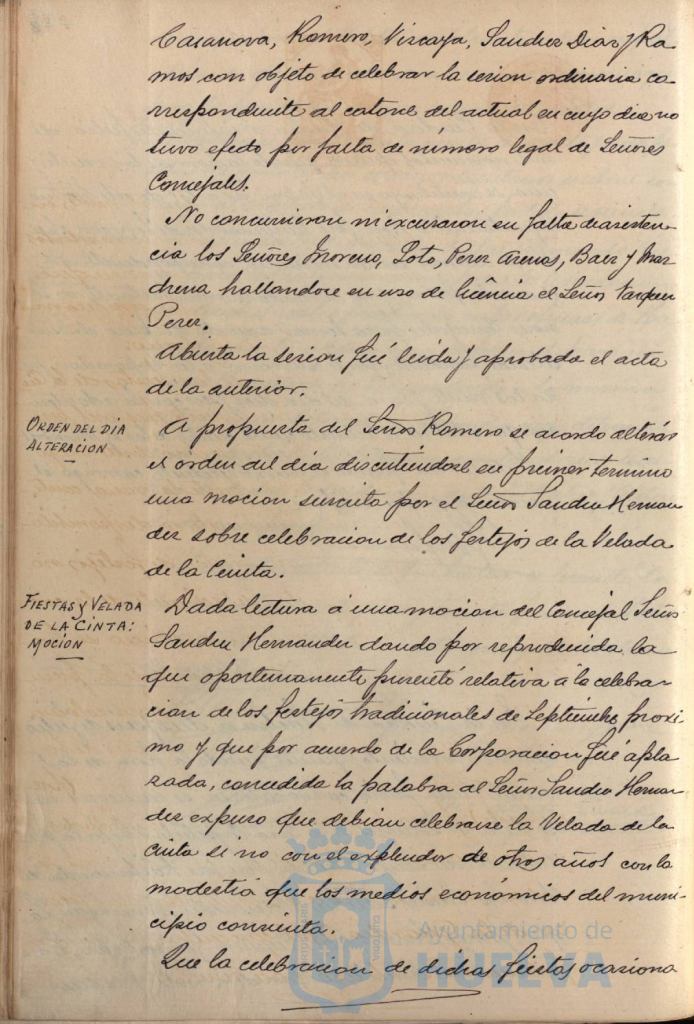 Casanova, Romero, Vizcaya, Sanchez Diaz y Ra-
mos con objeto de celebrar la sesion ordinaria co-
rrespondiente al catorce del actual en cuyo dia no
tuvo efecto por falta de número legal de Señores
Concejales.
No concurrieron ni excusaron su falta de asisten-
cia los Señores Moreno, Soto, Perez Arenas, Baez y Mar-
chena hallandose en uso de licéncia el Señor Vazquez
Perez.
Abierta la sesion fué leida y aprobada el acta
de la anterior.
ORDEN DEL DIA
ALTERACION
A propuesta del Señor Romero se acordo alterar
el órden del dia discutiéndose en primer termino
una mocion suscrita por el Señor Sanchez Hernan
dez sobre celebracion de los festejos de la Velada
de la Cinta.
FIESTAS y VELADA
DE LA CINTA:
MOCION
Dada lectura á una mocion del Concejal Señor
Sanchez Hernandez dando por reproducida la
que oportunamente presentó relativa á la celebra-
cion de los festejos tradicionales de Septiembre proxi
mo y que por acuerdo de la Corporacion fué apla
zada, concedida la palabra al Señor Sanchez Hernan
dez expuso que debian celebrarse la Velada de la
Cinta si no con el explendor de otros años con la
modestia que los medios económicos del muni-
cipio consienta.
Que la celebracion de dichas fiestas ocasiona
Ayuntamiento de
HUELVA